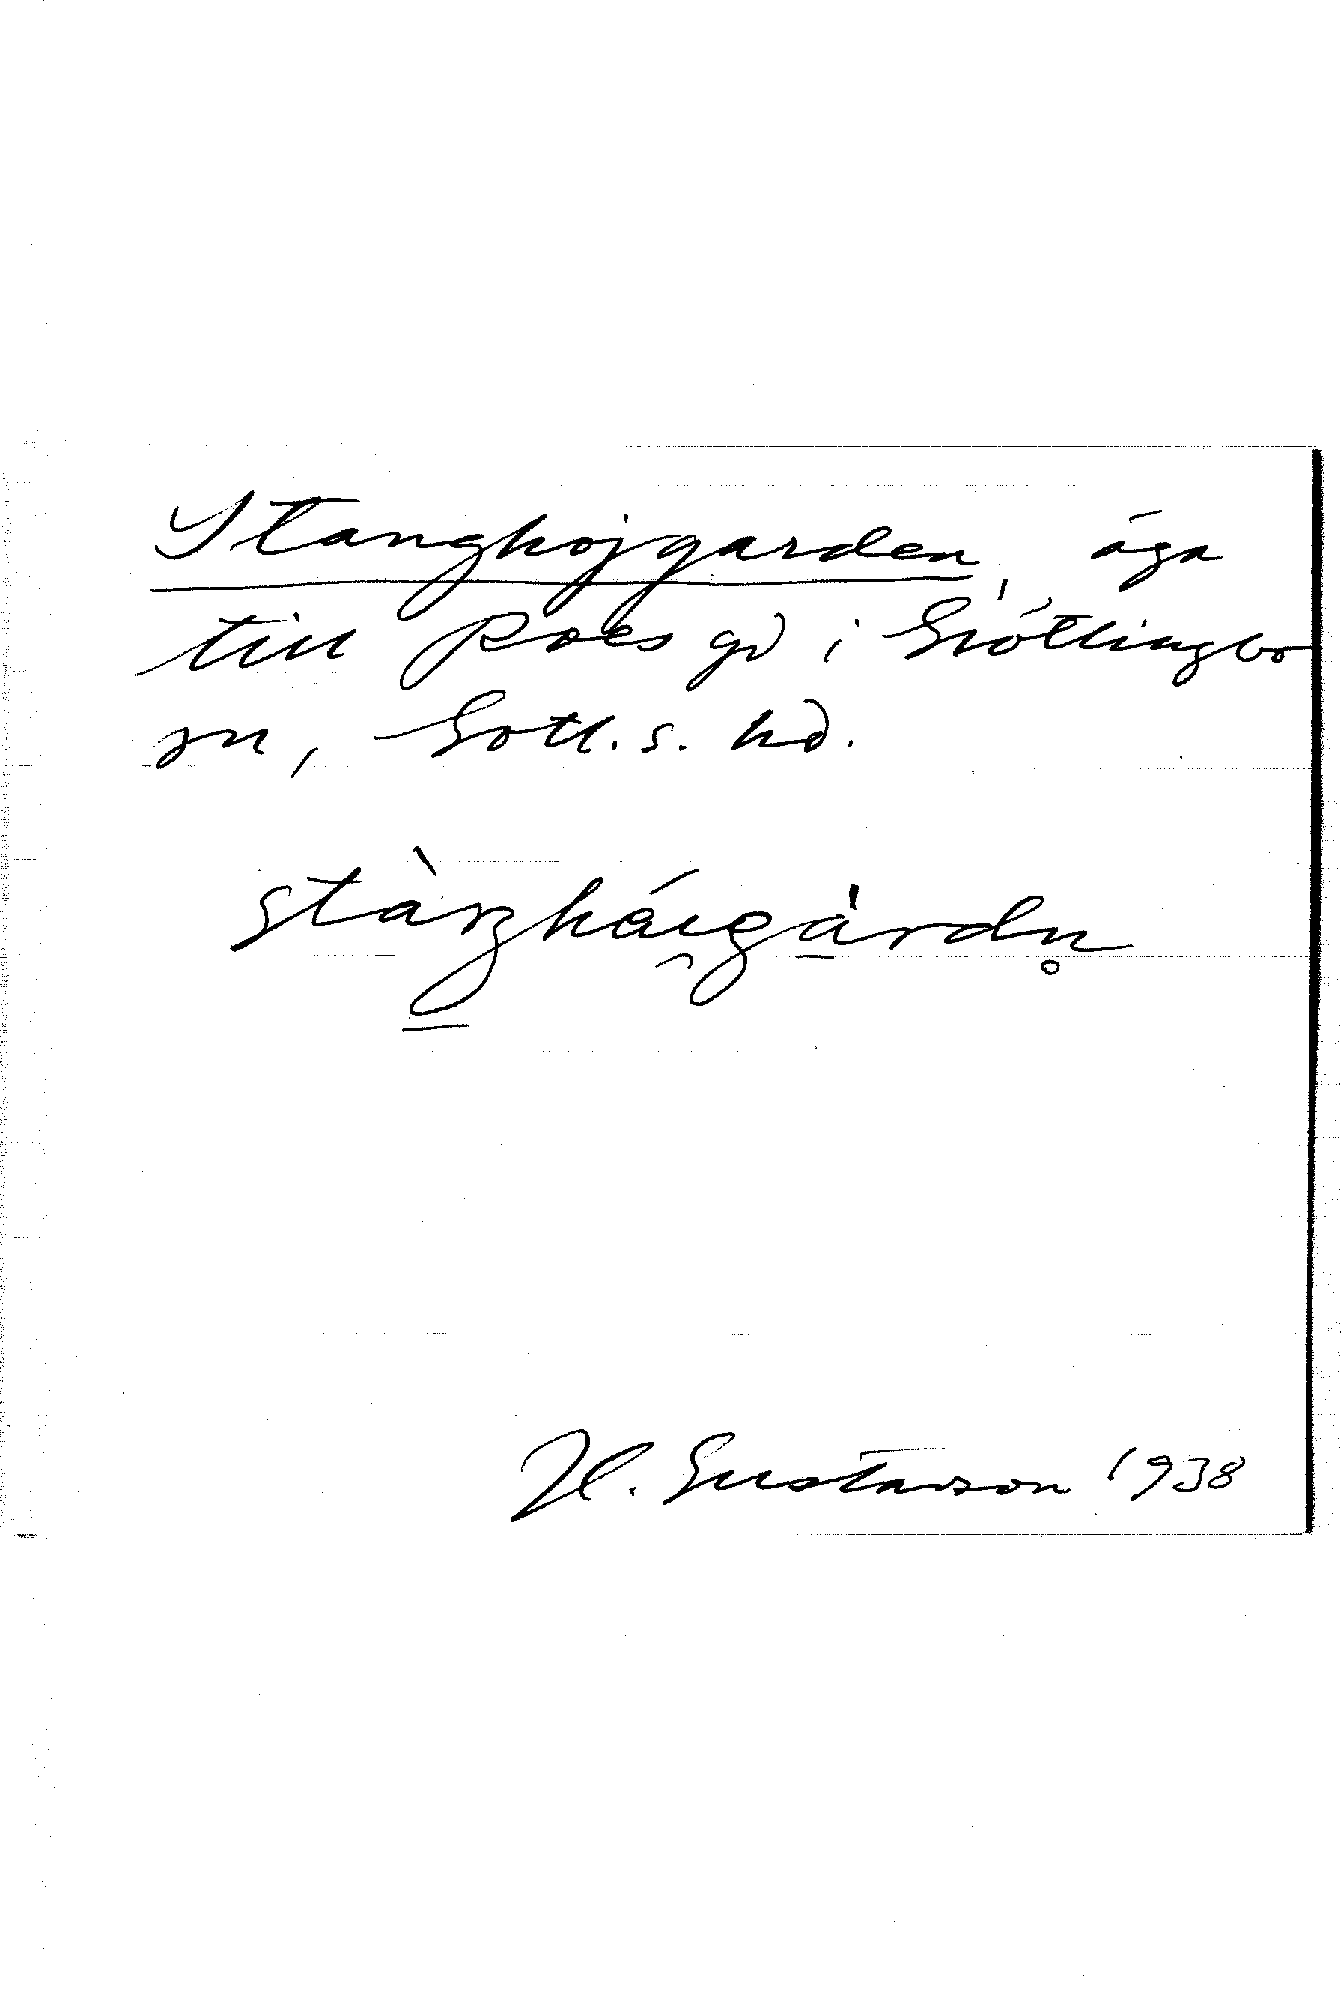 Stanghojgarden, äga
till Roes gd i Grötlingbo
sn, Gotl. s. hd.
H. Gustavson 1938